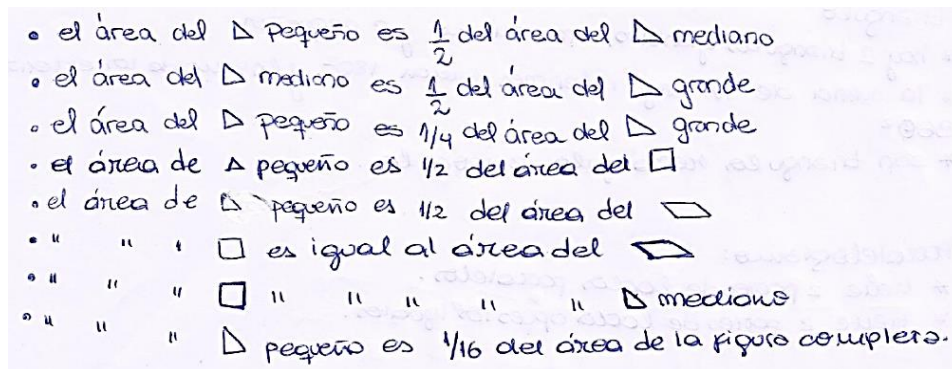 • el área del △ Pequeño es 1/2 del área del △ mediano
• el área del △ mediano es 1/2 del área del △ grande
• el área del △ pequeño es 1/4 del área del △ grande
• el área de △ pequeño es 1/2 del área del □
• el área de △ pequeño es 1/2 del área del ▱
• " " " □ es igual al área del ▱
• " " " □ " " " " " △ mediano
• " " " △ pequeño es 1/16 del área de la figura completa.